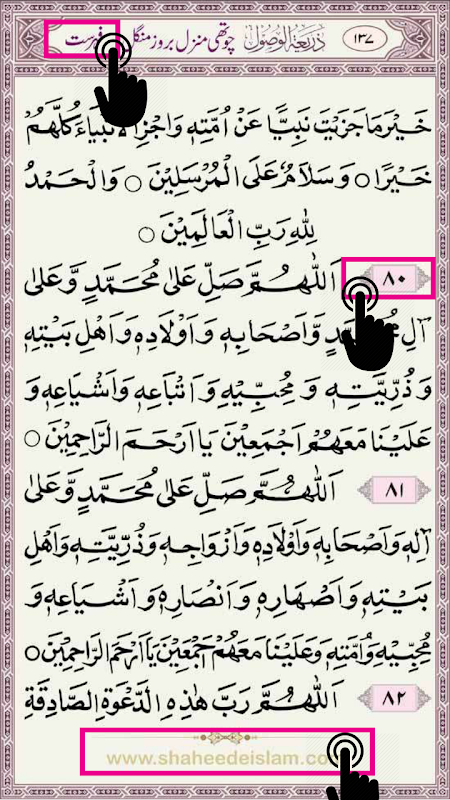 ١٣٧ ذريعة الوصول چوتھی منزل بروز منگل فہرست
خَيْرَ مَا جَزَيْتَ نَبِيًّا عَنْ اُمَّتِهٖ وَاجْزِ الْاَنْبِيَآءَ كُلَّهُمْ
خَيْرًا ○ وَسَلَامٌ عَلَى الْمُرْسَلِيْنَ ○ وَالْحَمْدُ
لِلّٰهِ رَبِّ الْعَالَمِيْنَ ○
٨٠ اَللّٰهُمَّ صَلِّ عَلٰى مُحَمَّدٍ وَّعَلٰى
اٰلِ مُحَمَّدٍ وَّاَصْحَابِهٖ وَاَوْلَادِهٖ وَاَهْلِ بَيْتِهٖ
وَذُرِّيَّتِهٖ وَمُحِبِّيْهِ وَاَتْبَاعِهٖ وَاَشْيَاعِهٖ وَ
عَلَيْنَا مَعَهُمْ اَجْمَعِيْنَ يَا اَرْحَمَ الرَّاحِمِيْنَ ○
٨١ اَللّٰهُمَّ صَلِّ عَلٰى مُحَمَّدٍ وَّعَلٰى
اٰلِهٖ وَاَصْحَابِهٖ وَاَوْلَادِهٖ وَاَزْوَاجِهٖ وَذُرِّيَّتِهٖ وَاَهْلِ
بَيْتِهٖ وَاَصْهَارِهٖ وَاَنْصَارِهٖ وَاَشْيَاعِهٖ وَ
مُحِبِّيْهِ وَاُمَّتِهٖ وَعَلَيْنَا مَعَهُمْ اَجْمَعِيْنَ يَا اَرْحَمَ الرَّاحِمِيْنَ ○
٨٢ اَللّٰهُمَّ رَبَّ هٰذِهِ الدَّعْوَةِ الصَّادِقَةِ
www.shaheedeislam.com